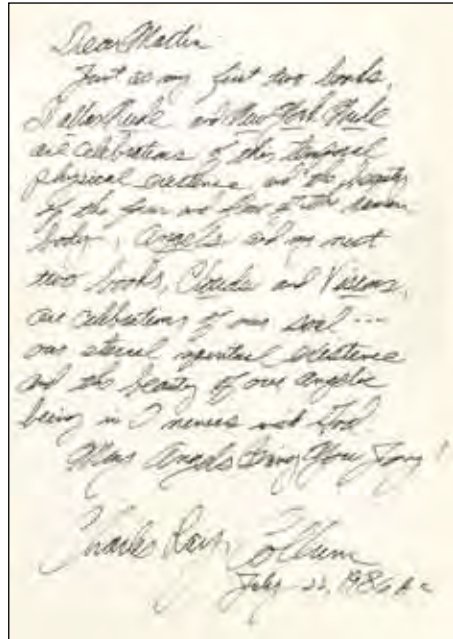 Dear Martin
Just as my first two books,
Dallas Nude and New York Nude
are celebrations of this temporal
physical existence, and the beauty
of the form and flow of the human
body, Angels and my next
two books, Clouds and Visions,
are celebrations of our soul ...
our eternal spiritual existence
and the beauty of our angelic
being in with God.
May Angels bring You Joy!
Charles Collum
July 22, 1986